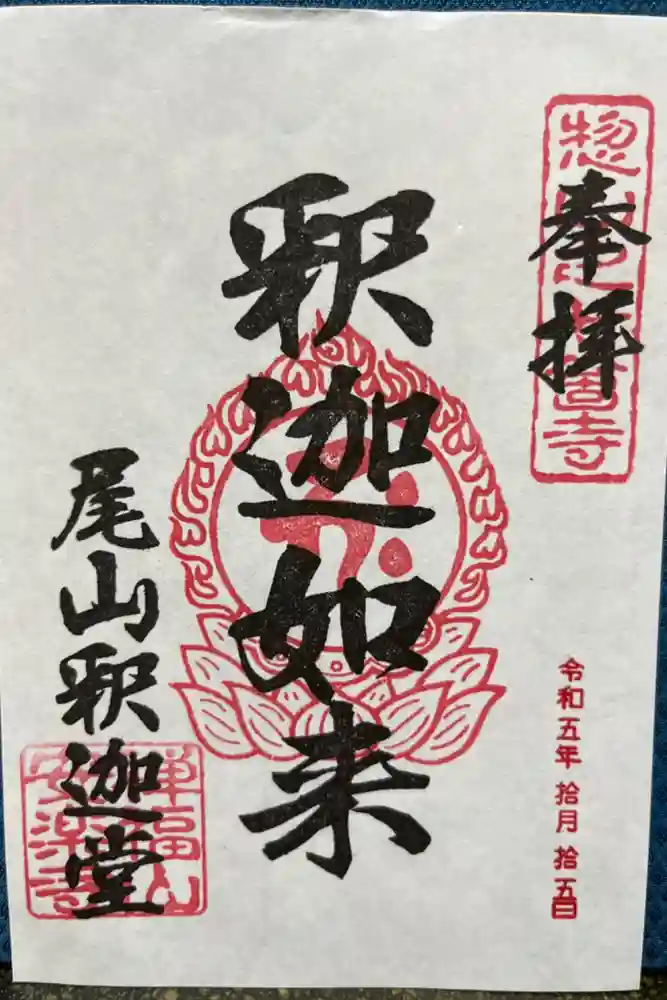 奉拝
令和五年 拾月 拾五日
釈迦如来
尾山釈迦堂
福山
安楽寺